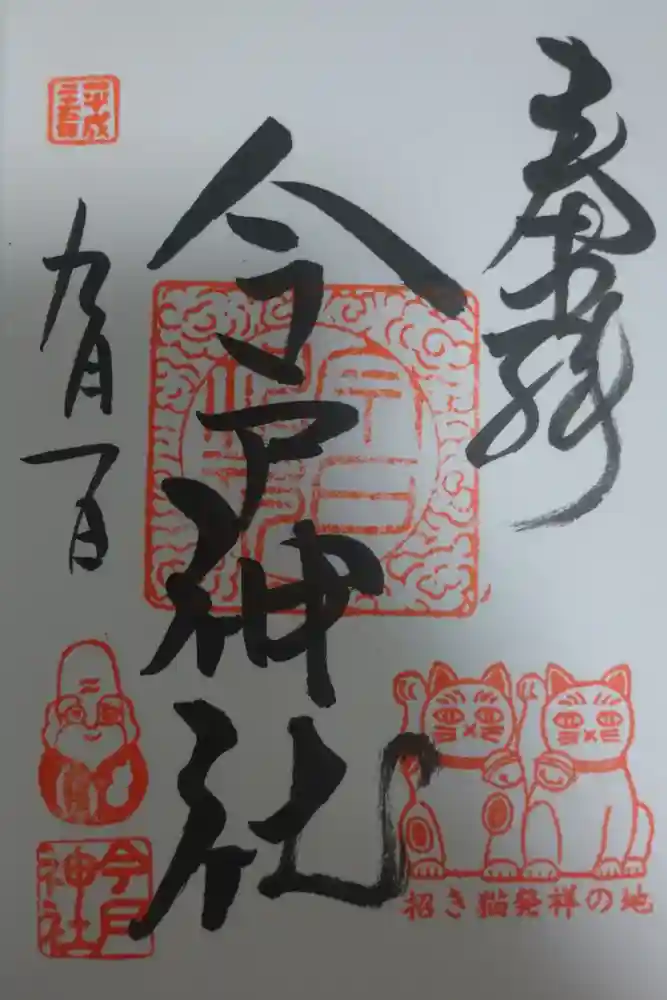 奉拝
今戸神社
平成
二十五年
九月一日
今戸
神社
今戸
神社
招き猫発祥の地